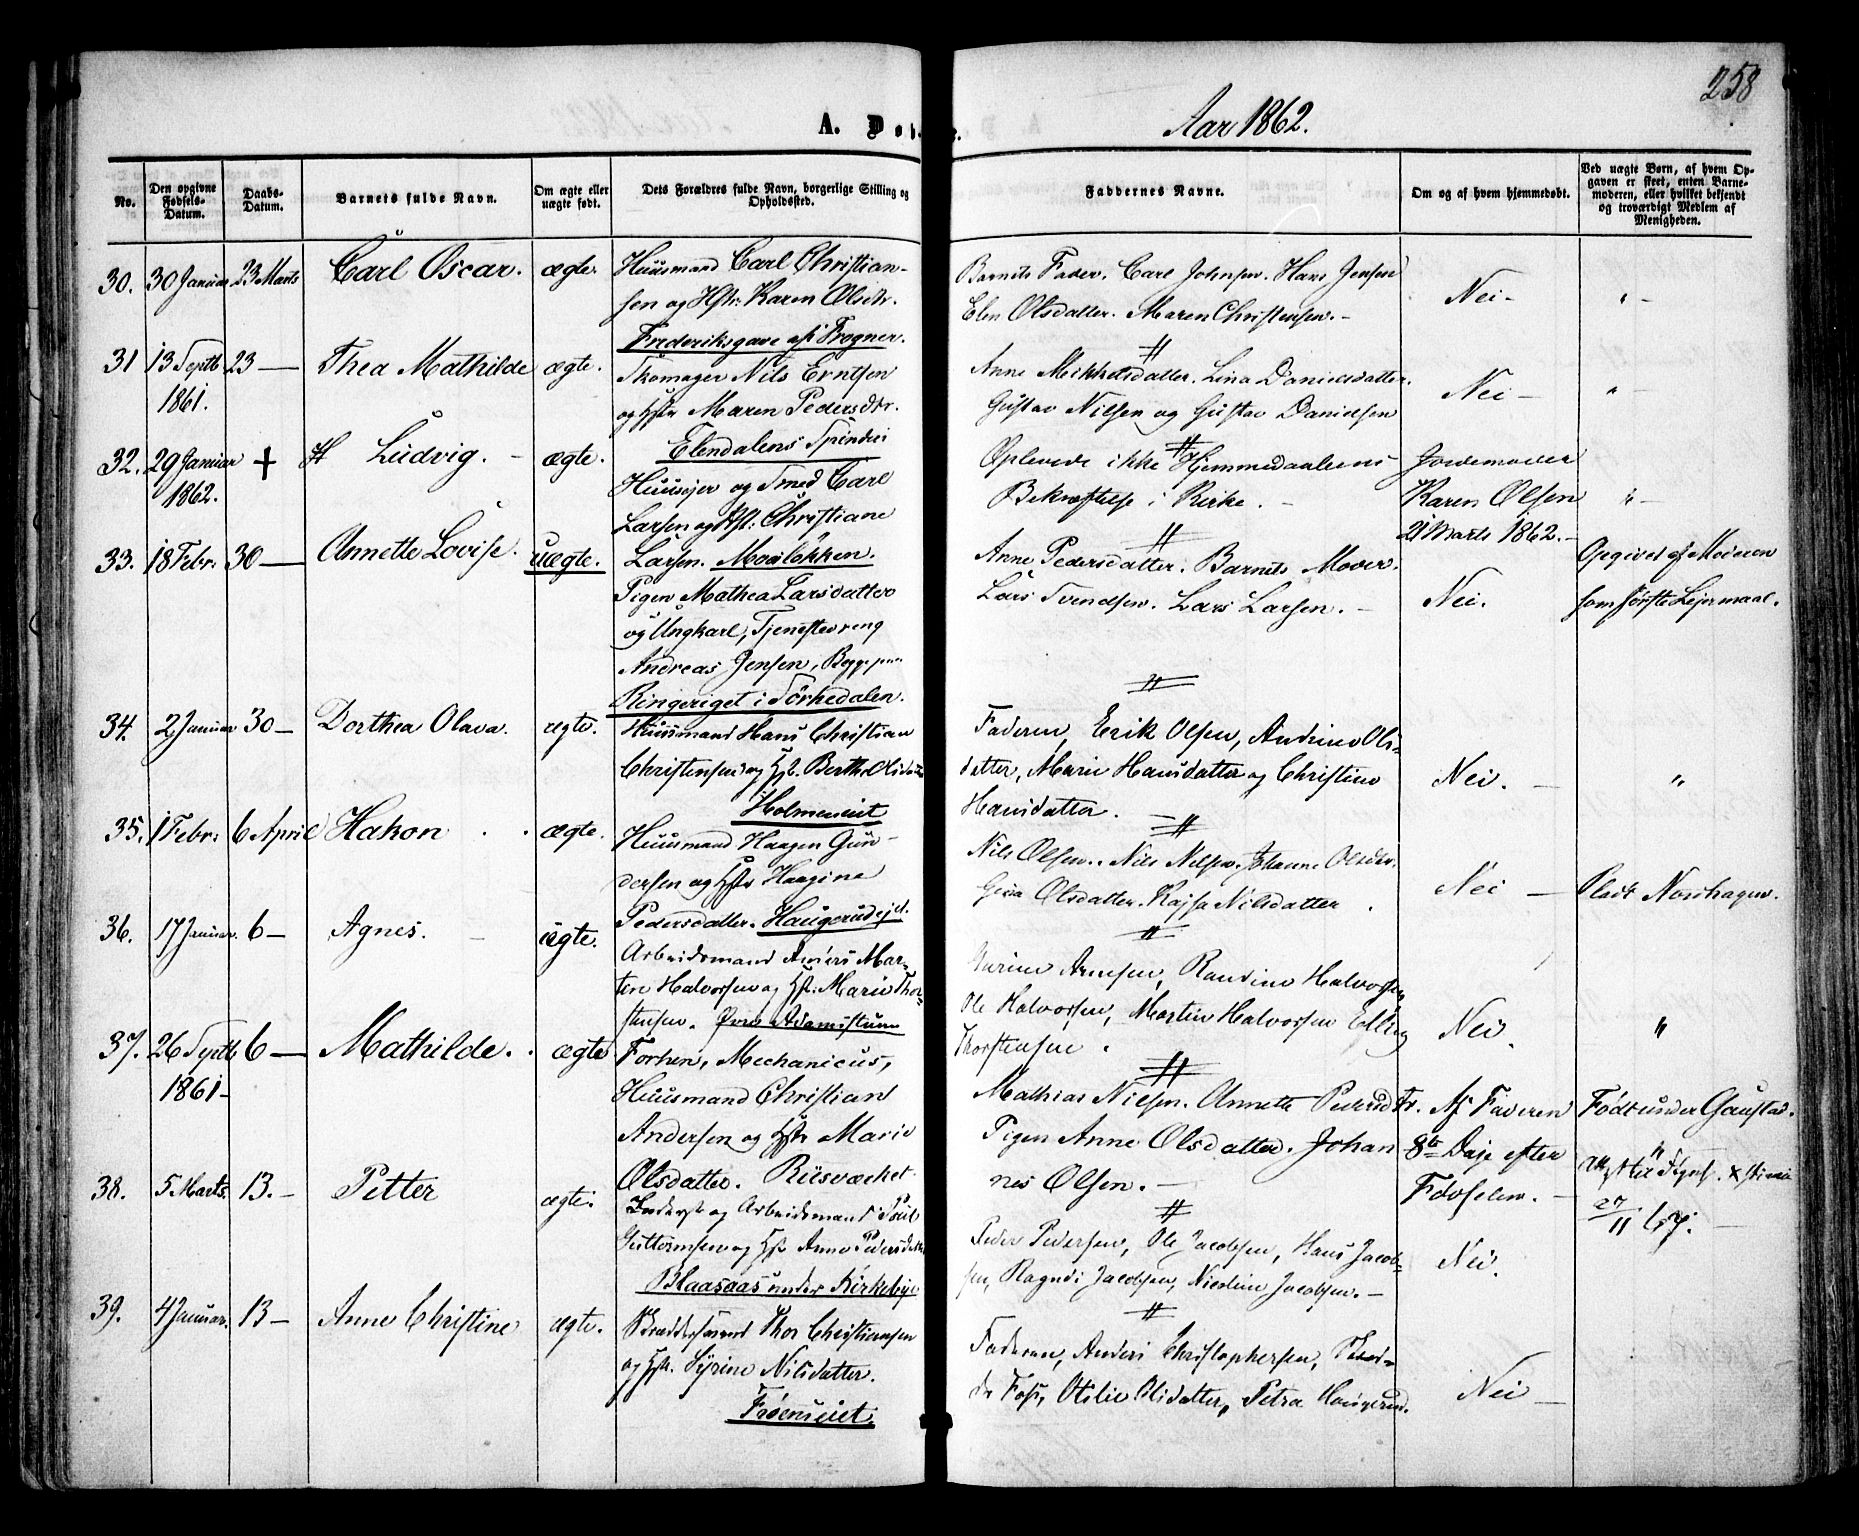 258
A. Døbte.
Aar 1862.
No.
Den opgivne Fødsels-Datum.
Daabs-Datum.
Barnets fulde Navn.
Om ægte eller uægte født.
Dets Forældres fulde Navn, borgerlige Stilling og Opholdssted.
Faddernes Navne.
Om og af hvem hjemmedøbt.
Ved uægte Børn, af hvem Opgaven er skeet, enten Barnemoderen, eller hvilket bekjendt og troværdigt Medlem af Menigheden.
30. 30 Januar 23 Marts Carl Oscar. ægte.
Huusmand Carl Christian-
sen og Hstr: Karen Olsdtr.
Frederiksgave af Frogner.
Barnets Fader. Carl Johnsen. Hans Jensen
Elen Olsdatter. Maren Christensen. -
Nei - " -
31 13 Septb 23 — Thea Mathilde ægte.
1861.
Skomager Nils Erntsen
og Hstr Maren Pedersdtr.
Elendalens Spinderi
Anne Mikkelsdatter. Lina Danielsdatter.
Gustav Nilsen og Gustav Danielsen
Nei - " -
32. 29 Januar + Ludvig. - ægte.
1862.
Huusejer og Smed Carl
Larsen og Hst: Christiane
Larsen. Moeløkken.
Oplevede ikke Hjemmedaabens
Bekræftelse i Kirke. -
Jordemoder
Karen Olsen
21 Marts 1862. -
" -
33. 18 Febr. 30 — Annette Lovise. uægte.
Pigen Mathea Larsdatter
og Ungkarl, Tjenestedreng
Andreas Jensen, Begge paa
Ringeriget i Sørkedalen.
Anne Pedersdatter. Barnets Moder.
Lars Svendsen. Lars Larsen. -
Nei.
Opgivet af Moderen
som første Lejermaal.
34. 2 Januar 30 — Dorthea Olava. ægte.
Huusmand Hans Christian
Christensen og Hst. Berthe Olsdatter
Holmeneiet
Faderen, Erik Olsen, Andrine Ols-
datter, Marie Hansdatter og Christine
Hansdatter.
Nei. - "
35. 1 Febr: 6 April Hakon . . ægte.
Huusmand Haagen Gun-
dersen og Hstr Haagine
Pedersdatter. Haugerudejet.
Nils Olsen. Nils Nilsen. Johanne Olsdtr.
Gina Olsdatter. Kajsa Nilsdatter.
Nei — Plads Nordhagen.
36. 17 Januar. 6 — Agnes. - ægte.
Arbeidsmand Anders Mar-
tin Halvorsen og Hst: Marie Thor-
stensen. Øvre Adamstuen
Karine Arnesen, Randine Halvorsen
Ole Halvorsen, Martin Halvorsen Elling
Thorstensen.
Nei. "
37. 26 Septb 6 — Mathilde. . ægte
1861 -
Forhen, Mechanicus,
Huusmand Christian
Andersen og Hstr Marie
Olsdatter. Riisværket
Mathias Nielsen. Annette Pedersdtr.
Pigen Anne Olsdatter. Johan
nes Olsen. -
Af Faderen
8te Dage efter
Fødselen. -
Født under Gaustad.
27/11 67.
38. 5 Marts. 13. - Petter ægte.
Inderst og Arbeidsmand Poul
Guttormsen og Hst Anne Pedersdatter
Blaasaas under Kirkebye
Peder Pedersen, Ole Jacobsen, Hans Jacob-
sen, Ragndi Jacobsen, Nicoline Jacobsen. -
Nei.
39. 4 Januar. 13 — Anne Christine ægte.
Thor Christiansen
og Hstr. Syrine Nilsdatter.
Frøeneiet.
Faderen, Anders Christophersen,
Foss, Otilie Olsdatter, Petra Haugerud.
Nei —